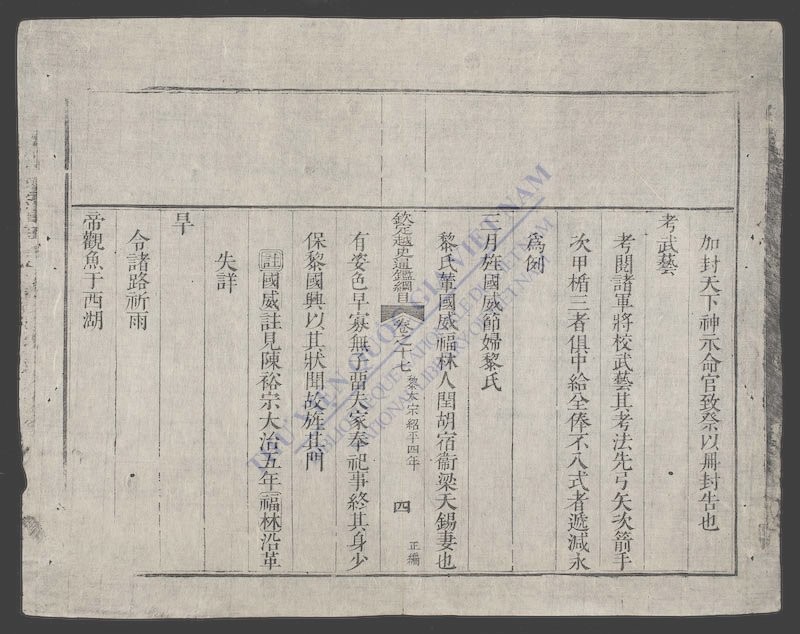 加封天下神示命官致祭以冊封告也
考武藝
考閱諸軍將校武藝其考法先弓矢次箭手
次甲楯三者俱中給全俸不入式者遞減永
爲例
三月旌國威節婦黎氏
黎氏葷國威福林人閏胡宿衞梁天錫妻也
欽定越史通鑑綱目 卷之十七 黎太宗紹平四年 四 正編
有姿色早寡無子畱夫家奉祀事終其身少
保黎國興以其狀聞故旌其門
註國威註見陳裕宗大治五年福林沿革
失詳
旱
令諸路祈雨
帝觀魚于西湖
THƯ VIỆN QUỐC GIA VIỆT NAM
BIBLIOTHEQUE NATIONALE DU VIETNAM
NATIONAL LIBRARY OF VIETNAM